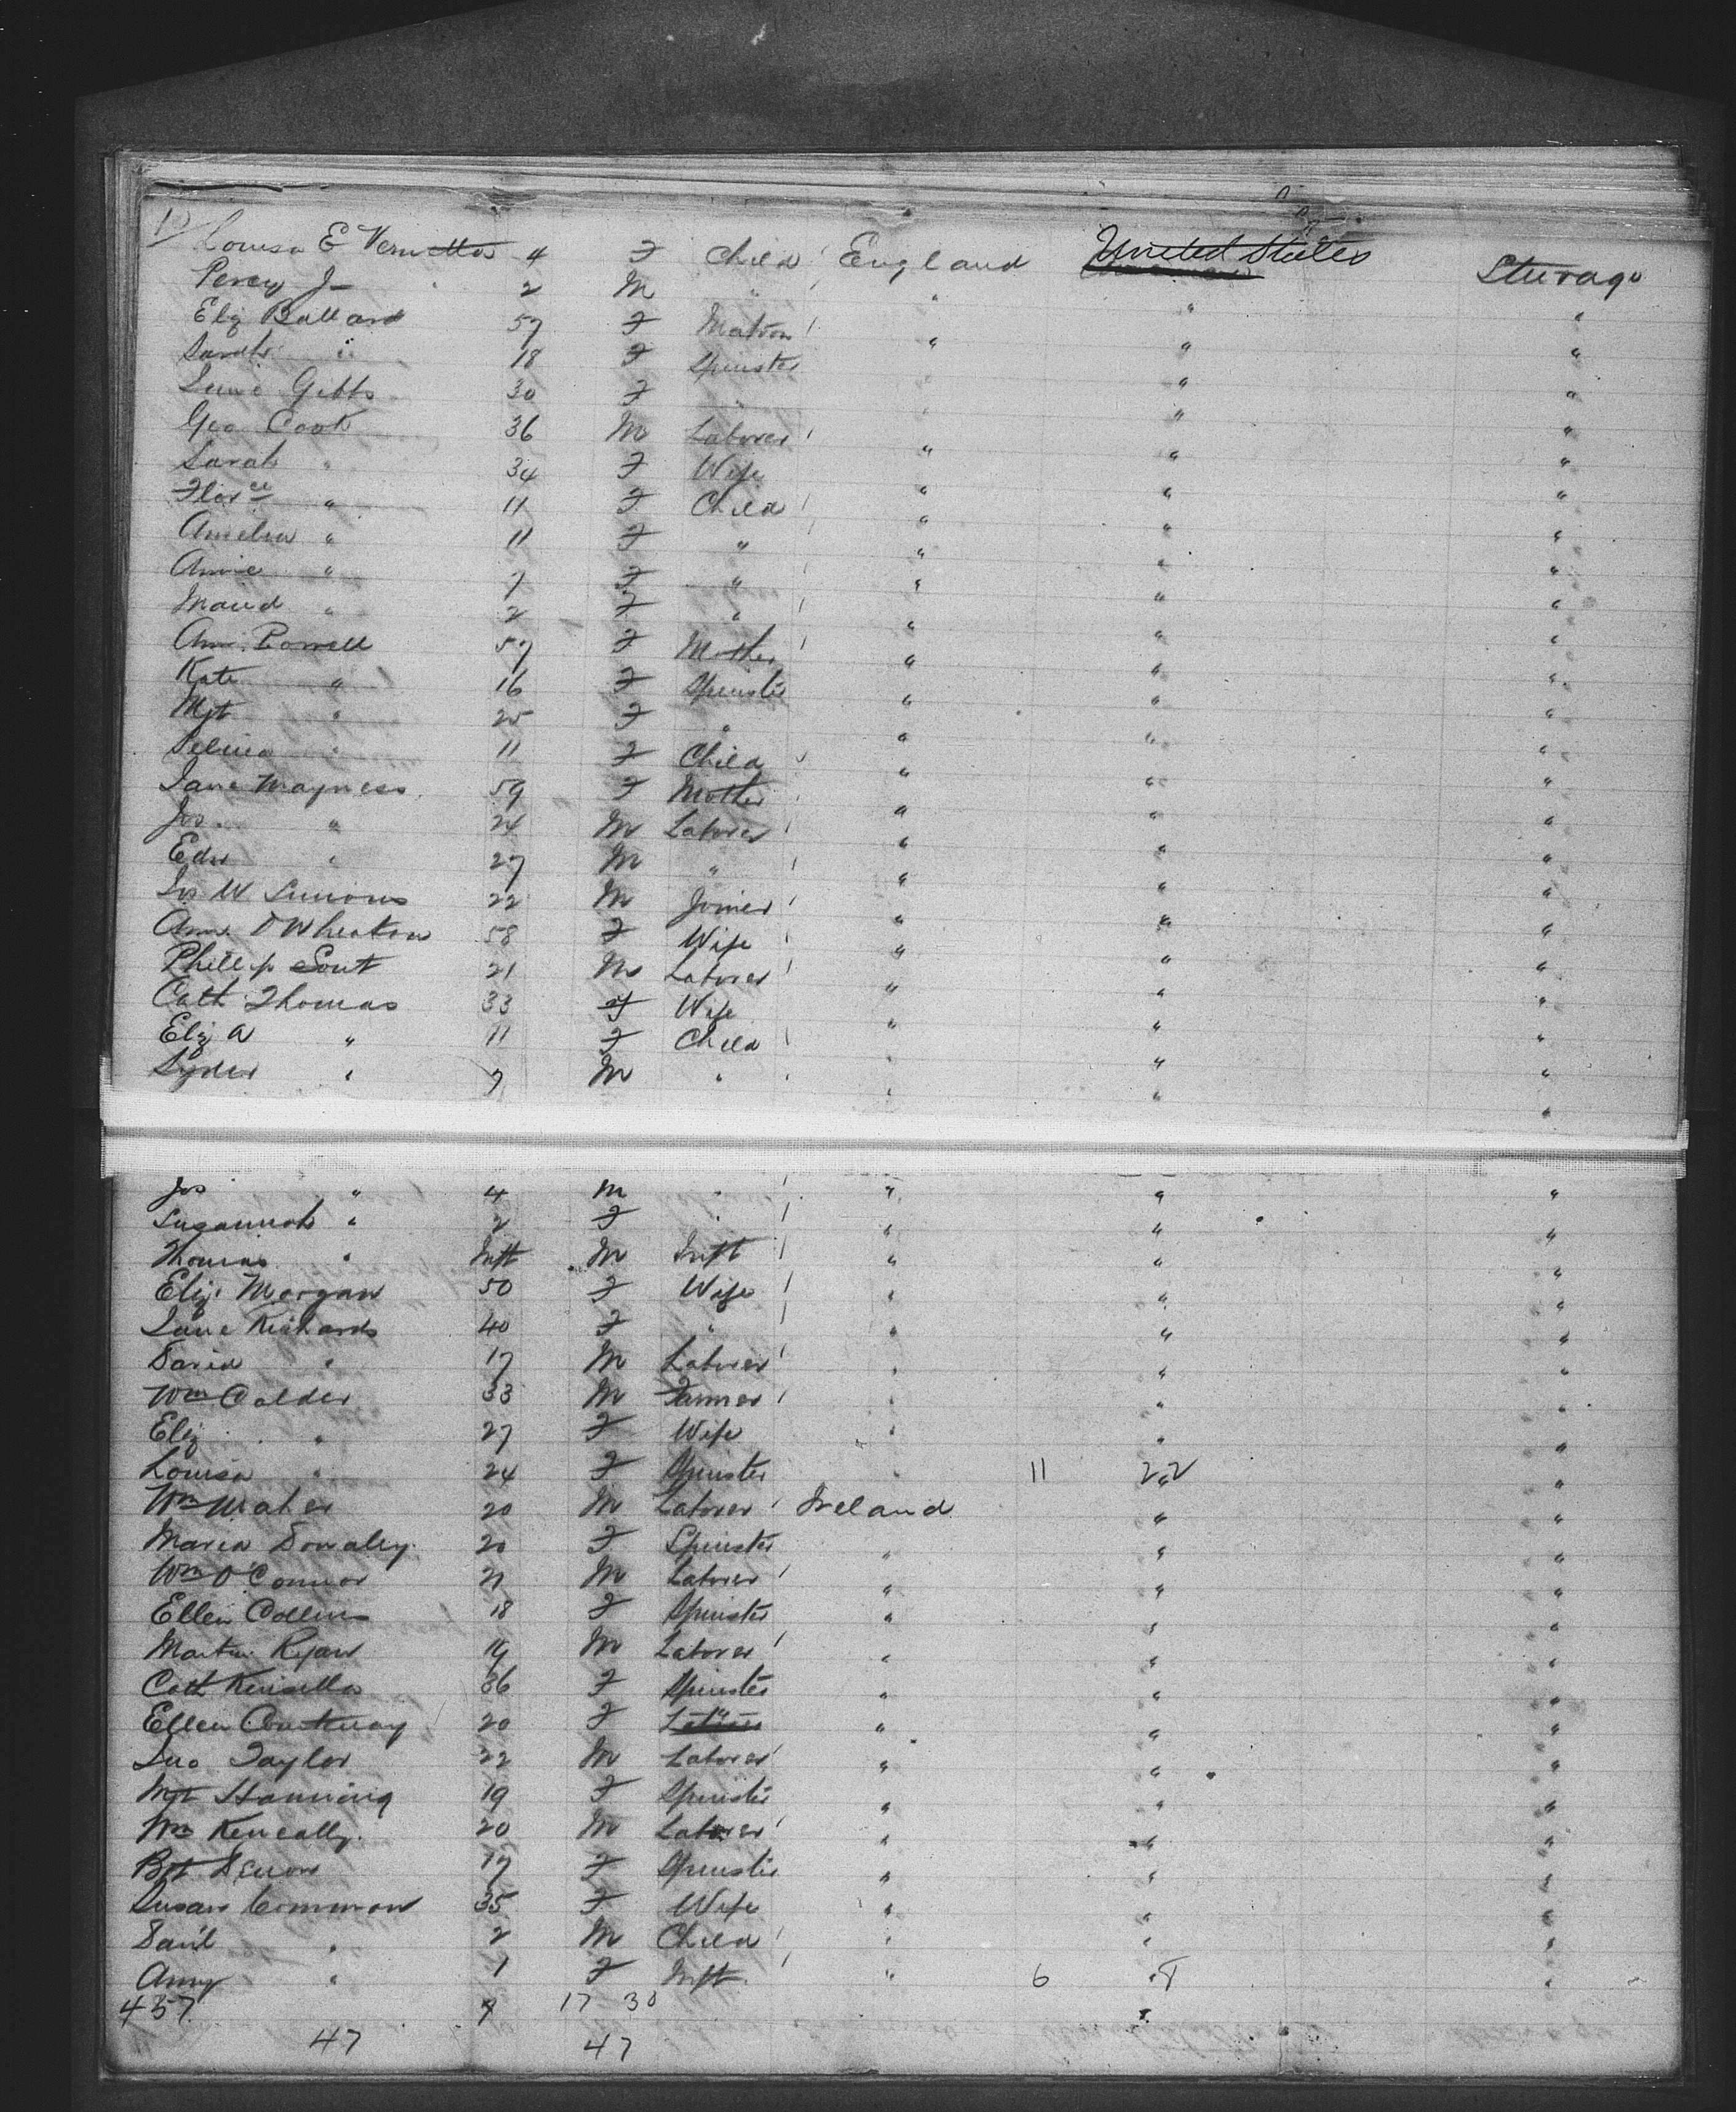 Louisa E Vernettas 4 F Child England United States Sterage
Percy J — 2 M " " " "
Eliz Ballard 57 F Matron " " "
Sarah " 18 F Spinster " " "
Gibbs 30 F " " " "
Geo Cook 36 M Laborer " " "
Sarah " 34 F Wife " " "
Florce " 11 F Child " " "
Amelia " 11 F " " " "
Annie " 7 F " " " "
Maud " 2 F " " " "
Ann Powell 57 F Mother " " "
Kate " 16 F Spinster " " "
Mgt " 25 F " " " "
Selina " 11 F Child " " "
Jane Magness 59 F Mother " " "
Jos " 24 M Laborer " " "
Edw " 27 M " " " "
Jos W Simons 22 M Joiner " " "
Ann D Wheaton 58 F Wife " " "
Phillip Sout 21 M Laborer " " "
Cath Thomas 33 F Wife " " "
Eliz A " 11 F Child " " "
" 7 M " " " "
Jos " 4 M " " " "
Susannah " 2 F " " " "
Thomas " Inft M Inft " " "
Eliz Morgan 50 F Wife " " "
Jane Richards 40 F " " " "
David " 17 M Laborer " " "
Wm Calder 33 M Farmer " " "
Eliz " 27 F Wife " " "
Louisa " 24 F Spinster " 11 22 " "
Wm Maher 20 M Laborer Ireland " "
Maria Donaley 20 F Spinster " " "
Wm O'Connor 21 M Laborer " " "
Ellen Collins 18 F Spinster " " "
Martin Ryan 19 M Laborer " " "
Cath Kinsella 36 F Spinster " " "
Ellen Courtenay 20 F " " " "
Jno Taylor 22 M Laborer " " "
Mgt Hanning 19 F Spinster " " "
Wm Keneally 20 M Laborer " " "
Bgt 17 F Spinster " " "
Susan Common 35 F Wife " " "
Danl " 2 M Child " " "
Amy " 1 F Inft " 6 8 " "
437 9 17 30
47 47